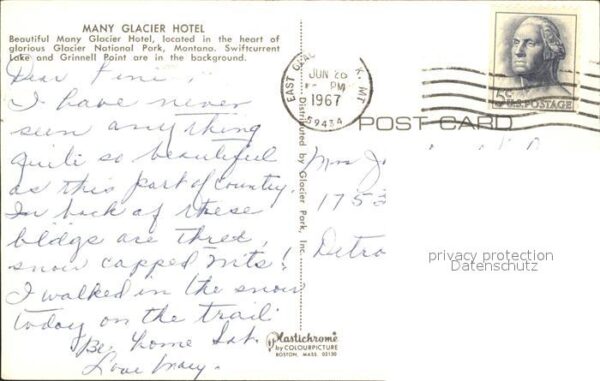 MANY GLACIER HOTEL
Beautiful Many Glacier Hotel, located in the heart of
glorious Glacier National Park, Montana. Swiftcurrent
Lake and Grinnell Point are in the background.
Dear
I have never
seen anything
quite so beautiful
as this part of country.
In back of these
bldgs are three,
snow capped mts!
I walked in the snow
today on the trail
Be home Sat.
Love Mary.
Distributed by Glacier Park, Inc.
Plastichrome
by COLOURPICTURE
BOSTON, MASS. 02130
EAST MT
JUN 28
PM
1967
59434
5¢
U.S. POSTAGE
POST CARD
Mrs
1753
Detro
privacy protection
Datenschutz